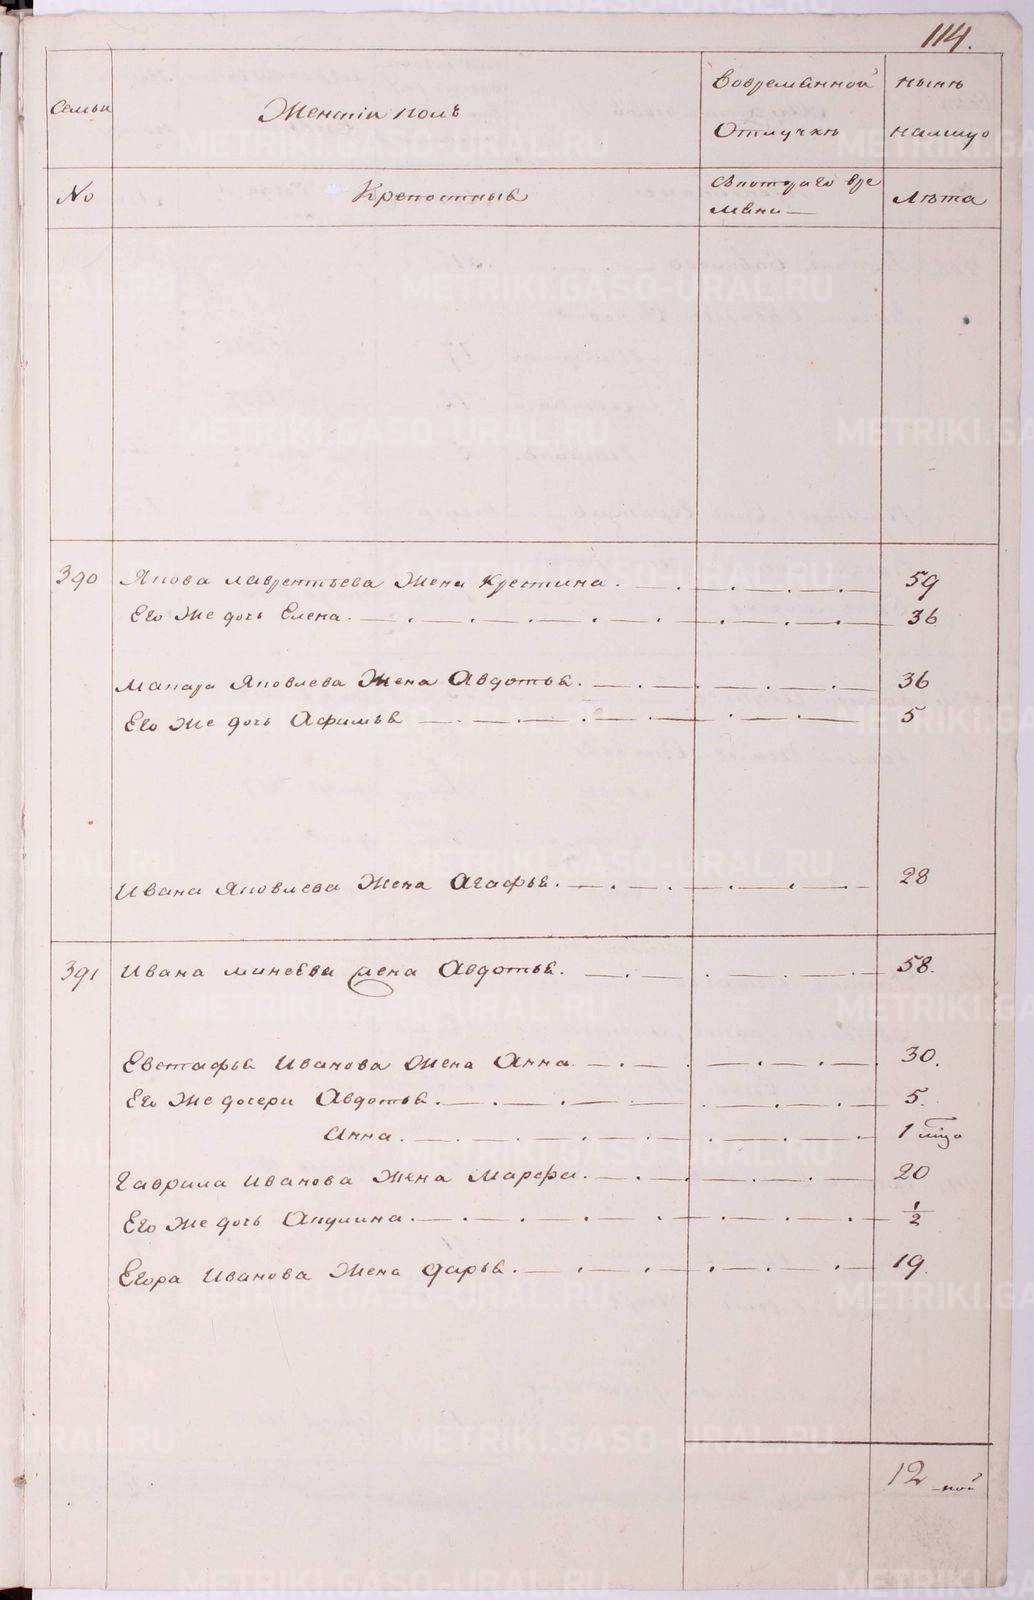 114.
Семьи
Женскiй полъ
Вовременной
Отлучкѣ
ныне
налицо
№
Крепостныя
Скотораго вре
мени —
Лѣта
390 Якова лаврентьева Жена Крестина. 59
Его Же дочь Елена. 36
Макара Яковлева Жена Авдотья. 36
Его Же дочь Афимья 5
Ивана Яковлева Жена Агафья. 28
391 Ивана минеева жена Авдотья. 58.
Евстафья Иванова Жена Анна 30.
Его Же дочери Авдотья. 5.
Анна. 1
Гаврила Иванова Жена Марфа. 20
Его Же дочь Акулина. 1/2
Егора Иванова Жена дарья. 19.
12
METRIKI.GASO-URAL.RU